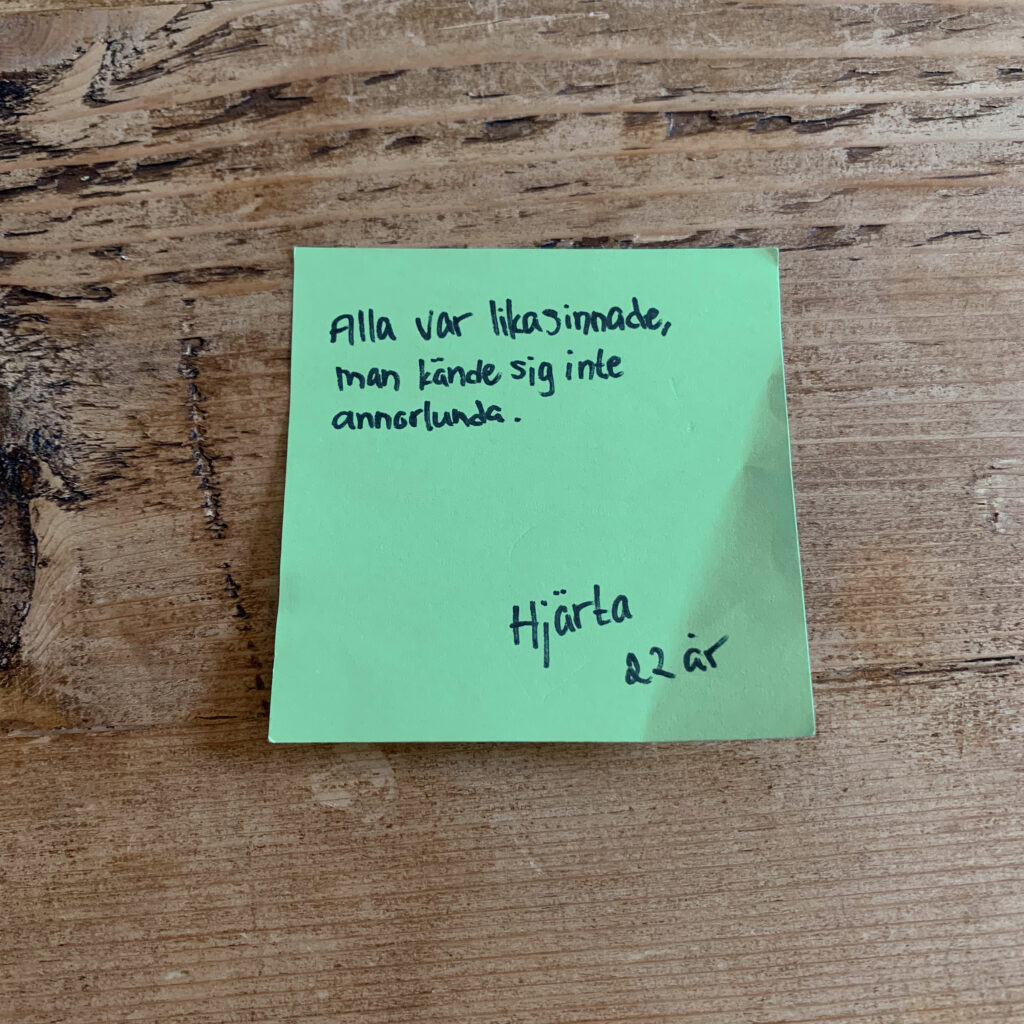 Alla var likasinnade,
man kände sig inte
annorlunda.
Hjärta
22 år